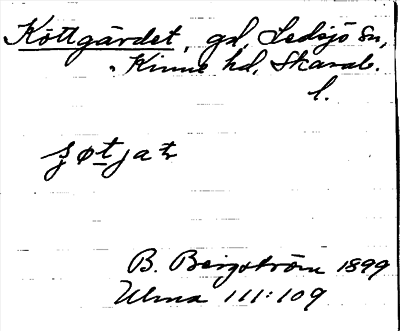 Köttgärdet, gd, Ledsjö sn,
Kinne hd. Skarab.
l.
B. Bergström 1899
Ulma 111:109